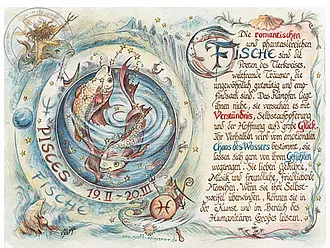 Die romantischen
und phantasiereichen
FISCHE sind die
Poeten des Tierkreises,
weltfremde Träumer, die
ungewöhnlich gutmütig und emp-
findsam sind. Das Kämpfen liegt
ihnen nicht, sie versuchen es mit
Verständnis, Selbstaufopferung
und der Hoffnung aufs große Glück.
Ihr Verhalten wird vom emotionalen
Chaos des Wassers bestimmt, sie
lassen sich gern von ihren Gefühlen
wegtragen. Sie lieben
Musik und freundliche,
Menschen. Wenn sie ihre Selbst-
zweifel überwinden, können sie in
der Kunst und im Bereich des
Humanitären Großes leisten.
PISCES
19 II 20 III